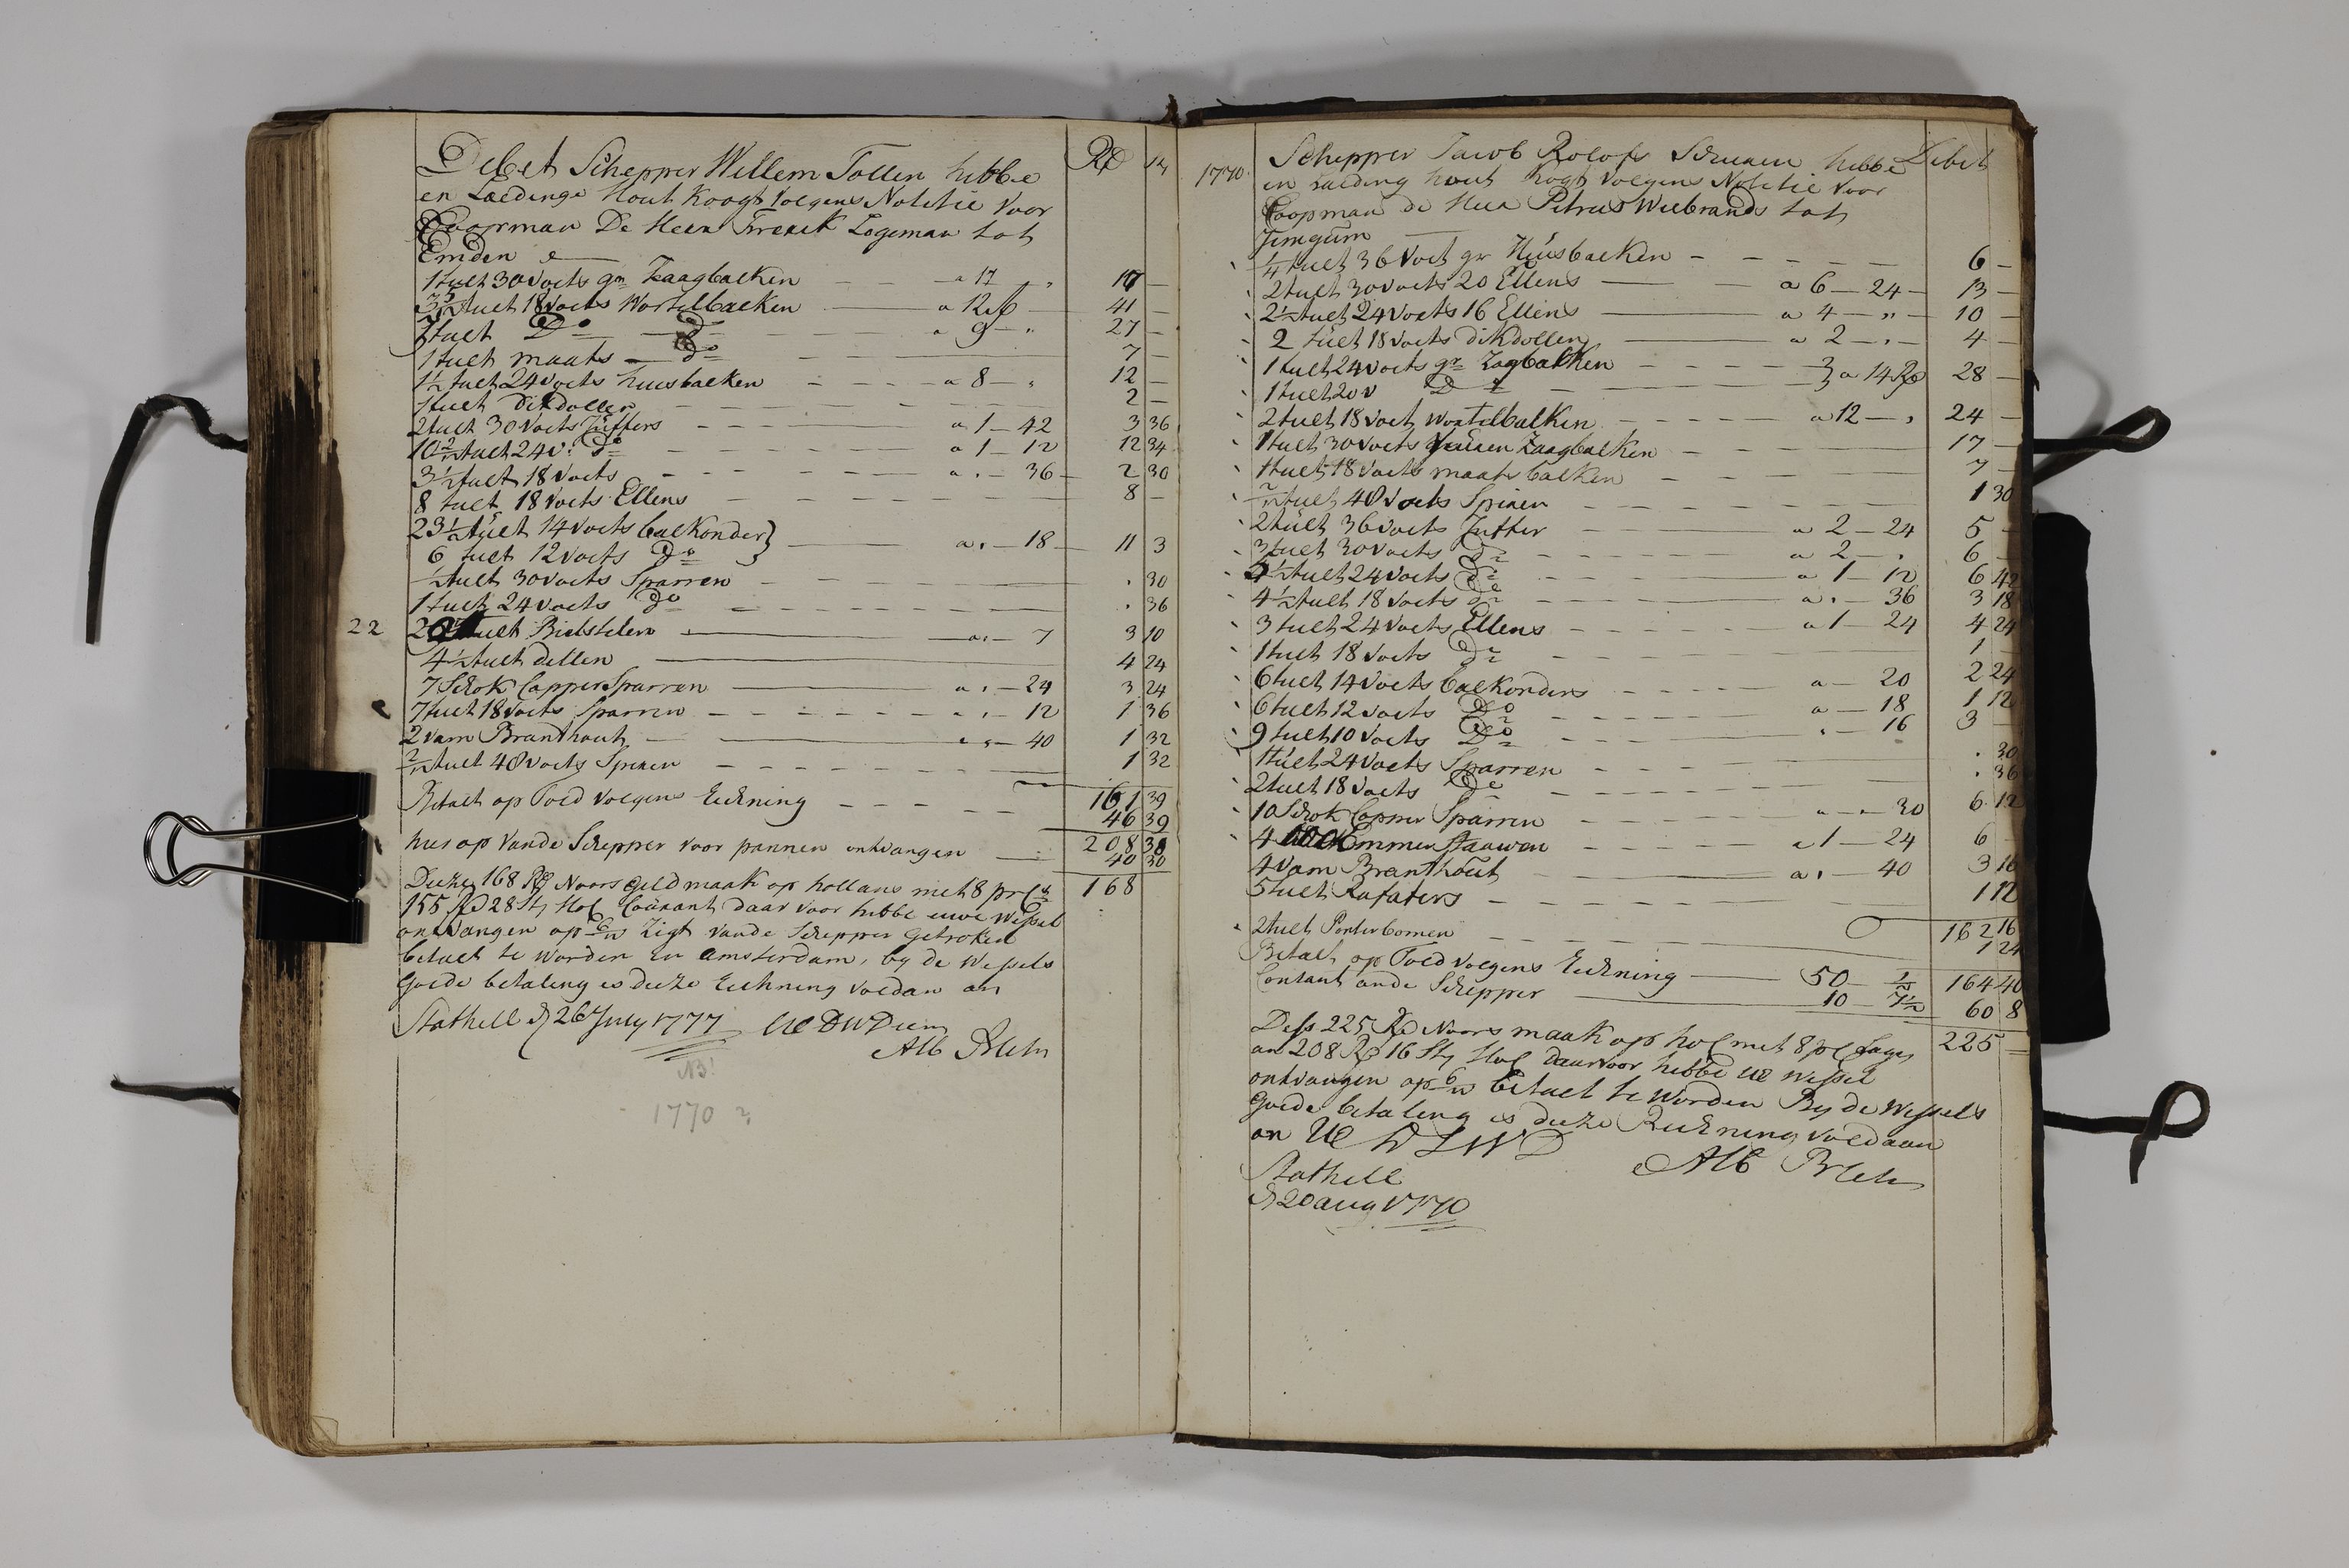 Debet Schepper Willem Tollen hebbe Rd st
en Laedinge hout koogt volgens Notitie voor
Coopman De Heer Frerick Logeman tot
Emden
1 tuelt 30 voets gr Zaagbalken a 17 17 —
3 5/12 tuelt 18 voets Wortelbalken a 12 Rd 41 —
3 tuelt Do Do a 9 — " 27 —
1 tuelt maats do 7 —
1 1/2 tuelt 24 voets huusbalken a 8 — " 12 —
1 tuelt Dikdollen 2 —
2 tuelt 30 voets Juffers a 1 — 42 3 36
10 2/12 tuelt 24 v: Do a 1 — 12 12 34
3 1/2 tuelt 18 voets a " — 36 2 30
8 tuelt 18 voets Ellens 8 —
23 1/2 tuelt 14 voets balkonder }
6 tuelt 12 voets Do } a " — 18 11 3
1/2 tuelt 30 voets Sparren " 30
1 tuelt 24 voets do " 36
22 tuelt Bielstelen a " — 7 3 10
4 1/2 tuelt dellen 4 24
7 Schok Capper Sparren a " — 24 3 24
7 tuelt 18 voets Sparren a " — 12 1 36
2 vam Branthout " " — 40 1 32
2/12 tuelt 40 voets Spieren 1 32
161 39
Betaelt op Toed volgens Rechning 46 39
208 30
hier op vande Schepper voor pannen ontvangen 40 30
168
Dieze 168 Rd Noors geld maak op hollans met 8 prCt
155 Rd 28 St Hol Courant daar voor hebbe uwe Wissel
ontvangen op 6/w Zigt vande Schepper getroken
betaelt te worden In Amsterdam, by de Wessels
goede betaling is dieze Rechning voldan an
Stathell d 26 July 1777 UE DW Dien
Alb Blehr
NB!
1770 ?
1770 Schepper Jacob Rolofs hebbe Debet
in Laeding hout kogt volgens Notitie voor
Coopman de Heer Petrus Weebrands tot
Jemgum
1/4 tuelt 36 voet gr Huusbalken 6 —
2 tuelt 30 voets 20 Ellens a 6 — 24 13 —
2 1/2 tuelt 24 voets 16 Ellens a 4 — " 10 —
2 tuelt 18 voets dikdollen a 2 — " 4 —
1 tuelt 24 voets gr Zagbalken }
1 tuelt 20 v Do } a 14 Rd 28 —
2 tuelt 18 voet Wortelbalken a 12 — " 24 —
1 tuelt 30 voets Zaagbalken 17 —
1 tuelt 18 voets maats balken 7 —
2/12 tuelt 40 voets Spieren 1 30
2 tuelt 36 voets Juffer a 2 — 24 5 —
3 tuelt 30 voets Do a 2 — " 6 —
5 1/2 tuelt 24 voets Do a 1 — 12 6 42
4 1/2 tuelt 18 voets Do a " — 36 3 18
3 tuelt 24 voets Ellens a 1 — 24 4 24
1 tuelt 18 voets Do 1 —
6 tuelt 14 voets balkonders a — 20 2 24
6 tuelt 12 voets Do a — 18 1 12
9 tuelt 10 voets Do " — 16 3 —
1 tuelt 24 voets Sparren " 30
2 tuelt 18 voets Do " 36
10 Schok Capper Sparren " " 30 6 12
4 Emmer Staawen a 1 — 24 6 —
4 vam Branthout a " — 40 3 16
5 tuelt Rafaters 1 12
162 16
2 tuelt Ponterbomen 1 24
Betaelt op Toed volgens Rechning 50 — 1/2 164 40
Contant ande Schepper 10 — 7 1/2 60 8
225 —
Dess 225 Rd Noors maak op hol met 8 pC
an 208 Rd 16 St Hol daarvoor hebbe UE Wessel
ontvangen op 6/w betaelt te worden By de Wessels
goede betaling is dieze Rechning voldaan
an UE
Stathelle Alb Blehr
d 20 aug 1770